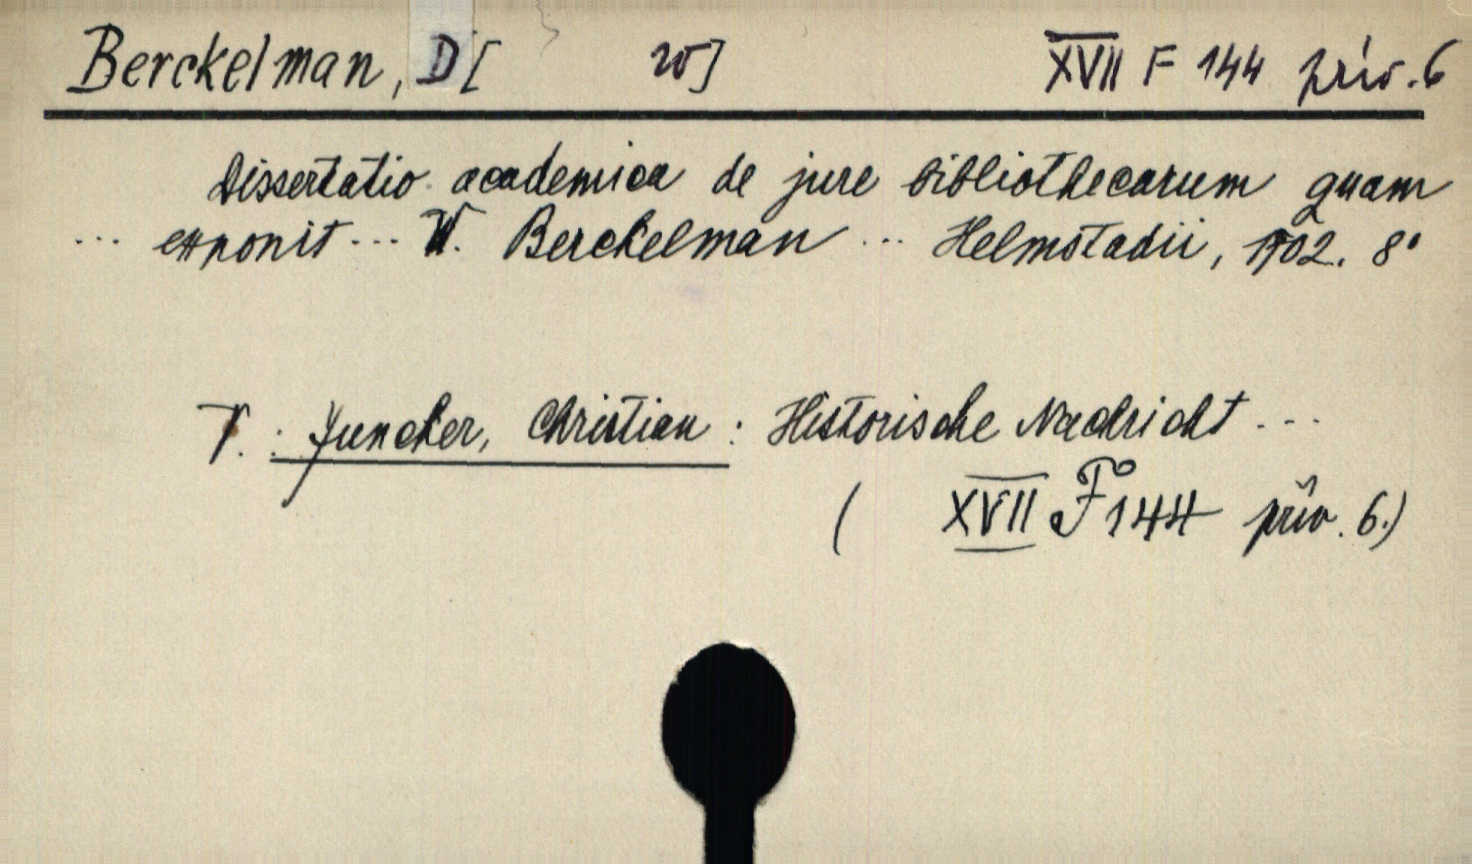 Berckelman, D[ w] XVII F 144 priv. 6
Dissertatio academica de jure bibliothecarum quam
... exponit ... W. Berckelman ... Helmstadii, 1702. 8°
V. : Juncker, Christian : Historische Nachricht ...
( XVII F 144 priv. 6.)